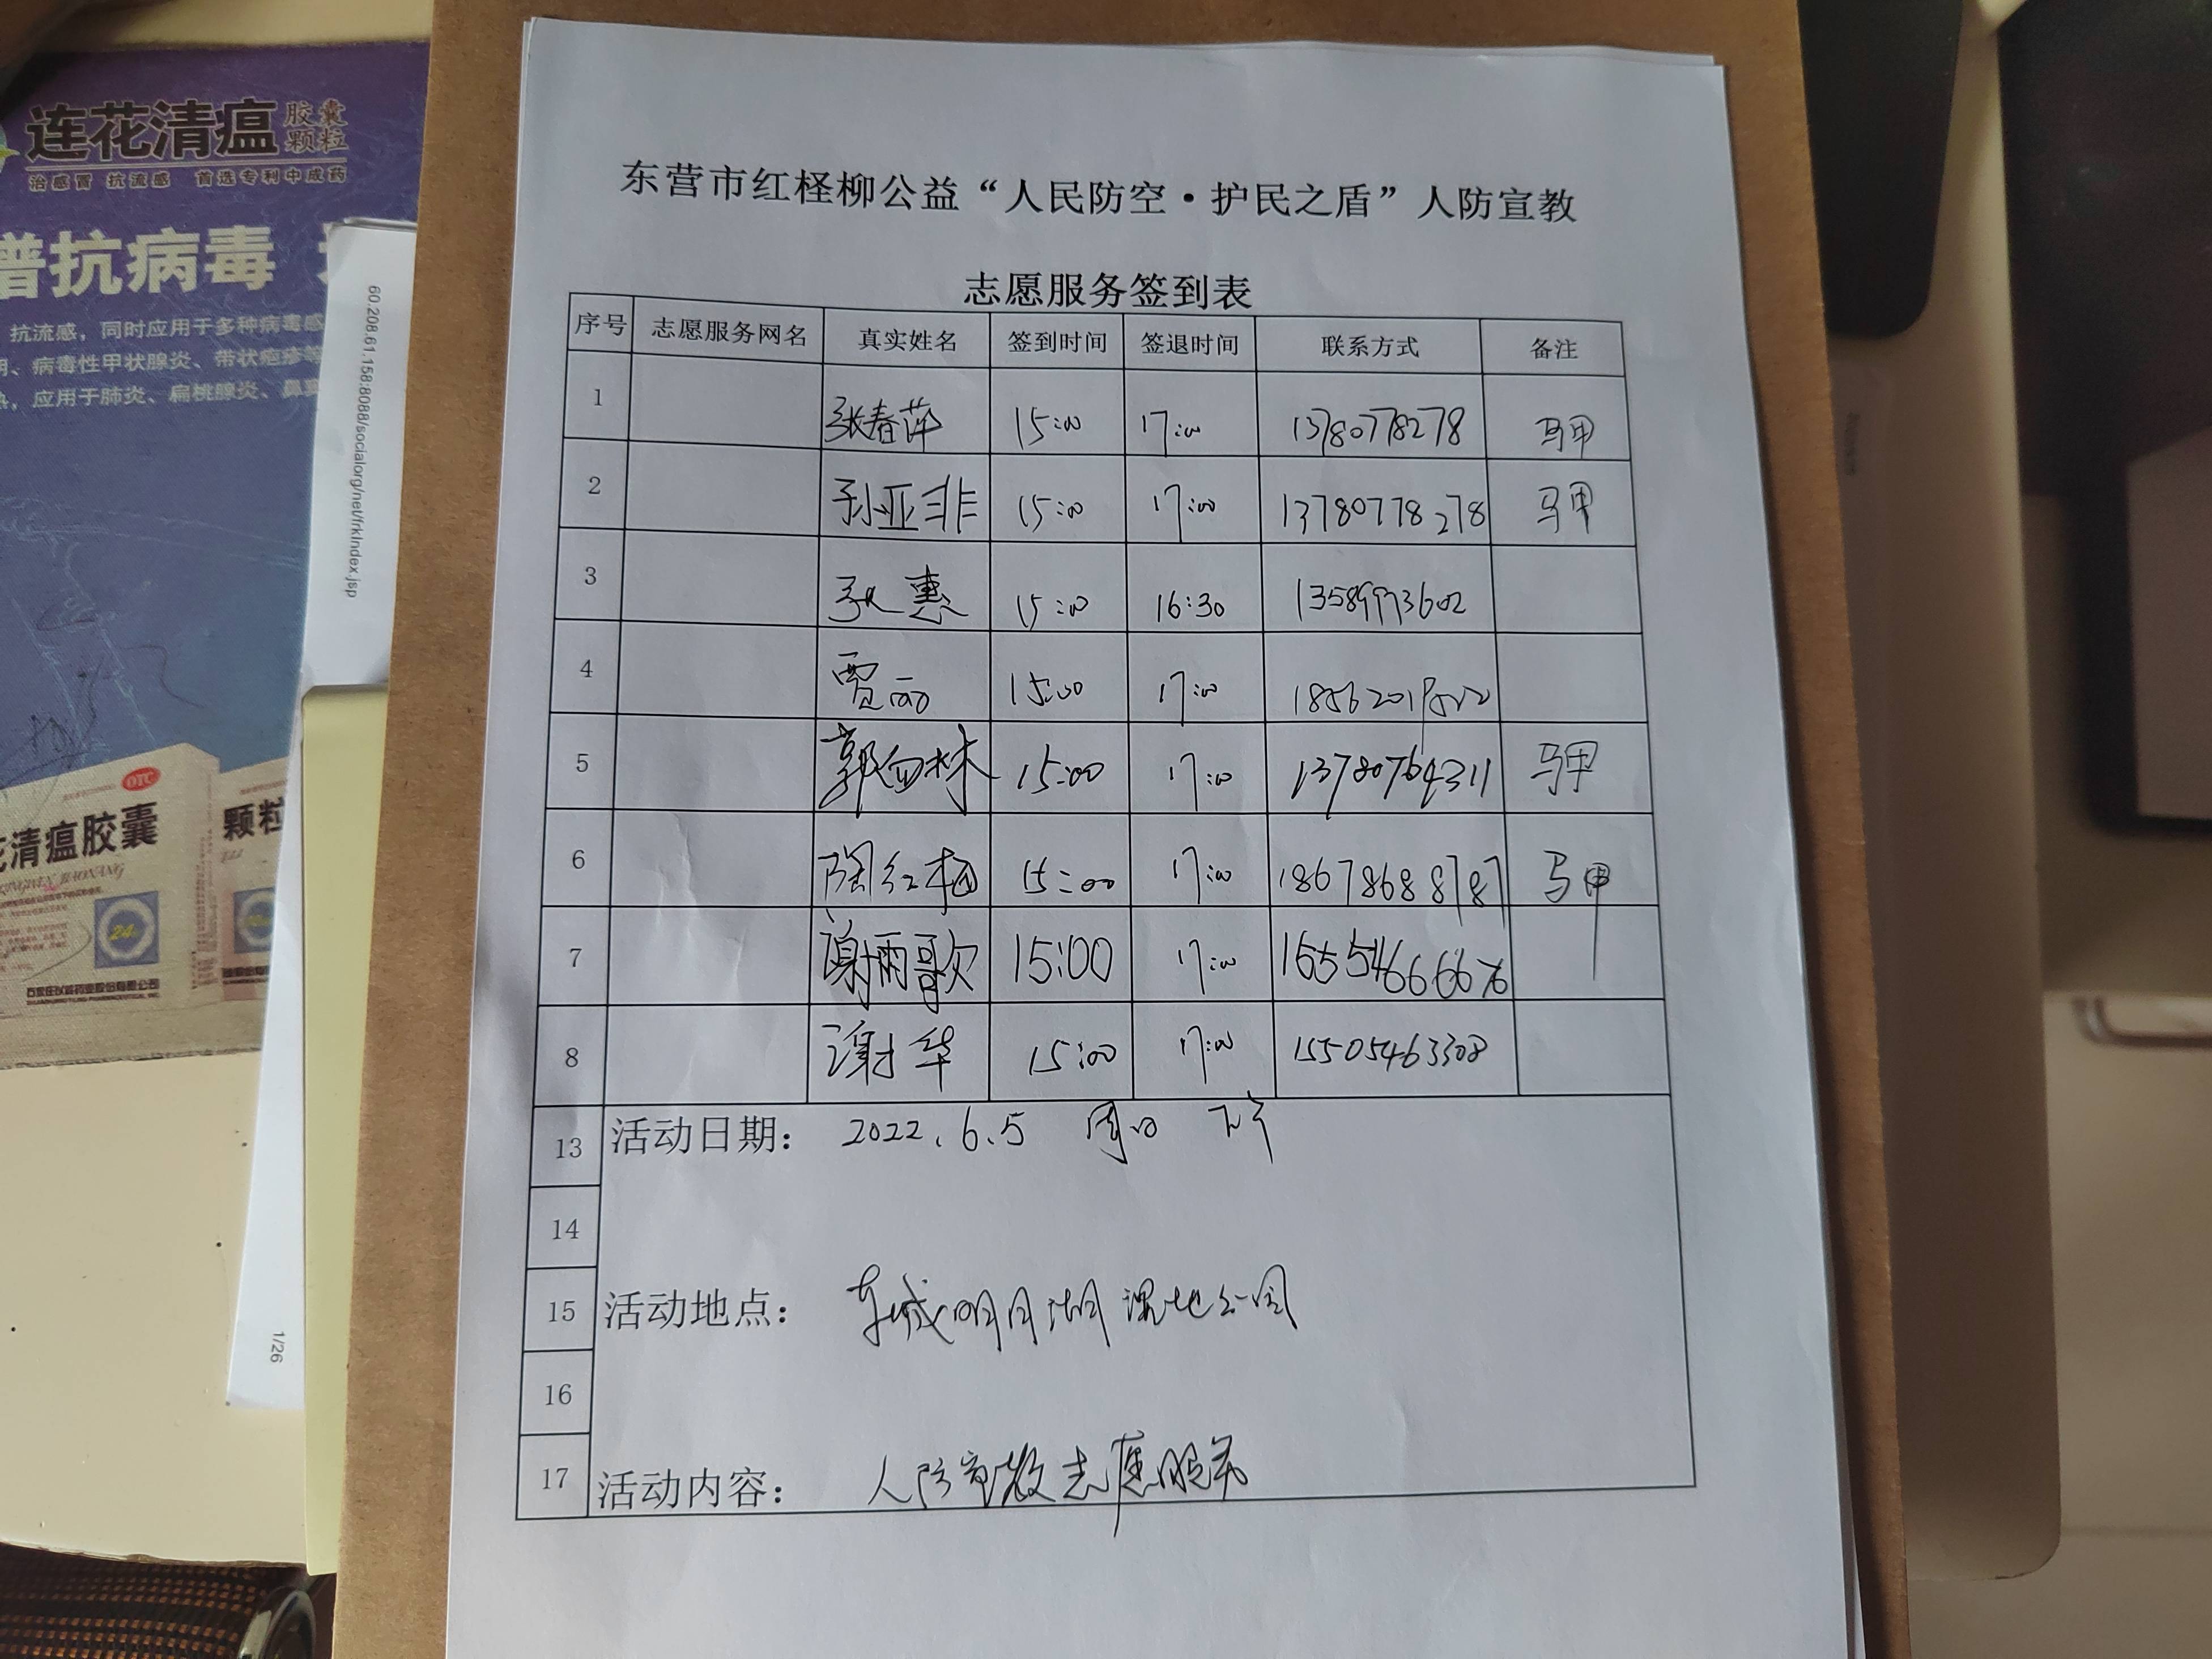 连花清瘟 胶囊 颗粒
治感冒 抗流感 首选专利中成药
普抗病毒
抗流感，同时应用于多种病毒感
、病毒性甲状腺炎、带状疱疹等
，应用于肺炎、扁桃腺炎、鼻
OTC
清瘟胶囊
颗粒
24
60.208.61.158:8088/socialorg/net/frkIndex.jsp
1/26
东营市红柽柳公益“人民防空·护民之盾”人防宣教
志愿服务签到表
序号 志愿服务网名 真实姓名 签到时间 签退时间 联系方式 备注
1 张春萍 15:00 17:00 13780778278 马甲
2 孙亚非 15:00 17:00 13780778278 马甲
3 张惠 15:00 16:30 13589993602
4 贾丽 15:00 17:00
5 郭向林 15:00 17:00 13780764311 马甲
6 陶红梅 15:00 17:00 18678688787 马甲
7 谢雨歌 15:00 17:00
8 谢华 15:00 17:00 15505463308
13 活动日期： 2022.6.5 周日 下午
14
15 活动地点： 东城明月湖湿地公园
16
17 活动内容： 人防宣教志愿服务